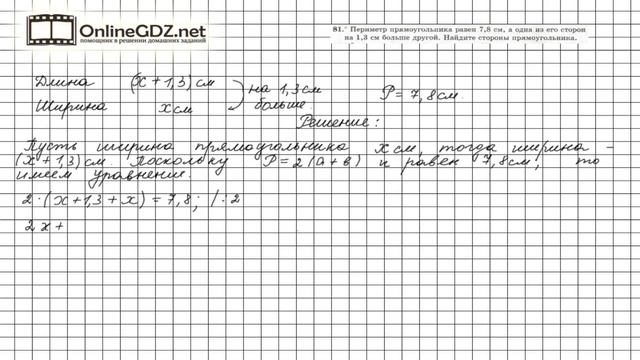 OnlineGDZ.net
ПОМОЩНИК В РЕШЕНИИ ДОМАШНИХ ЗАДАНИЙ
81.° Периметр прямоугольника равен 7,8 см, а одна из его сторон
на 1,3 см больше другой. Найдите стороны прямоугольника.
Длина (х + 1,3) см
на 1,3 см
Ширина х см
больше.
Р = 7,8 см
Решение:
Пусть ширина прямоугольника х см, тогда ширина -
(х + 1,3) см. Поскольку Р = 2 (а + в) и равен 7,8 см, то
имеем уравнение.
2 · (х + 1,3 + х) = 7,8; | : 2
2х +